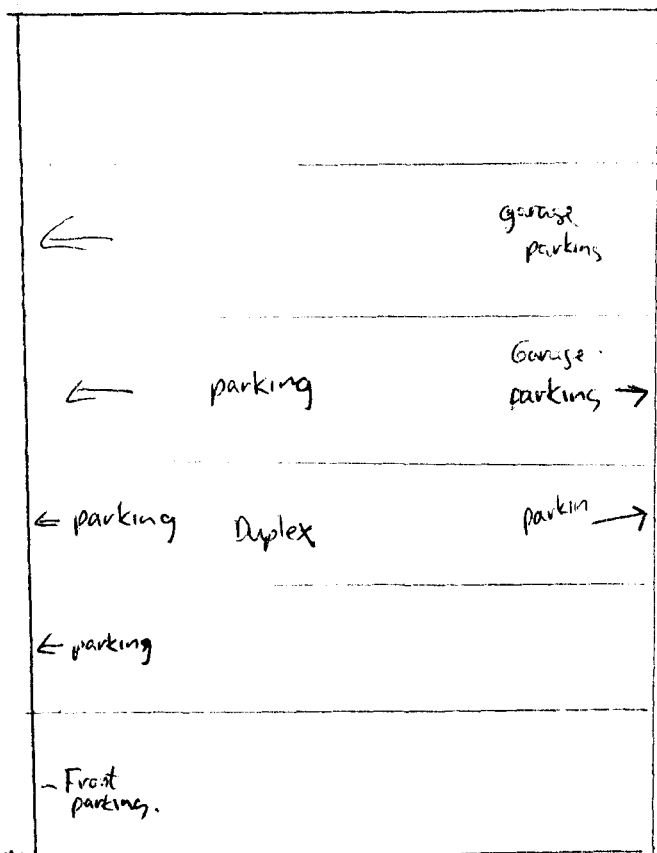 garage
parking
parking
Garage
parking
parking
Duplex
parkin
parking
- Front
parking.